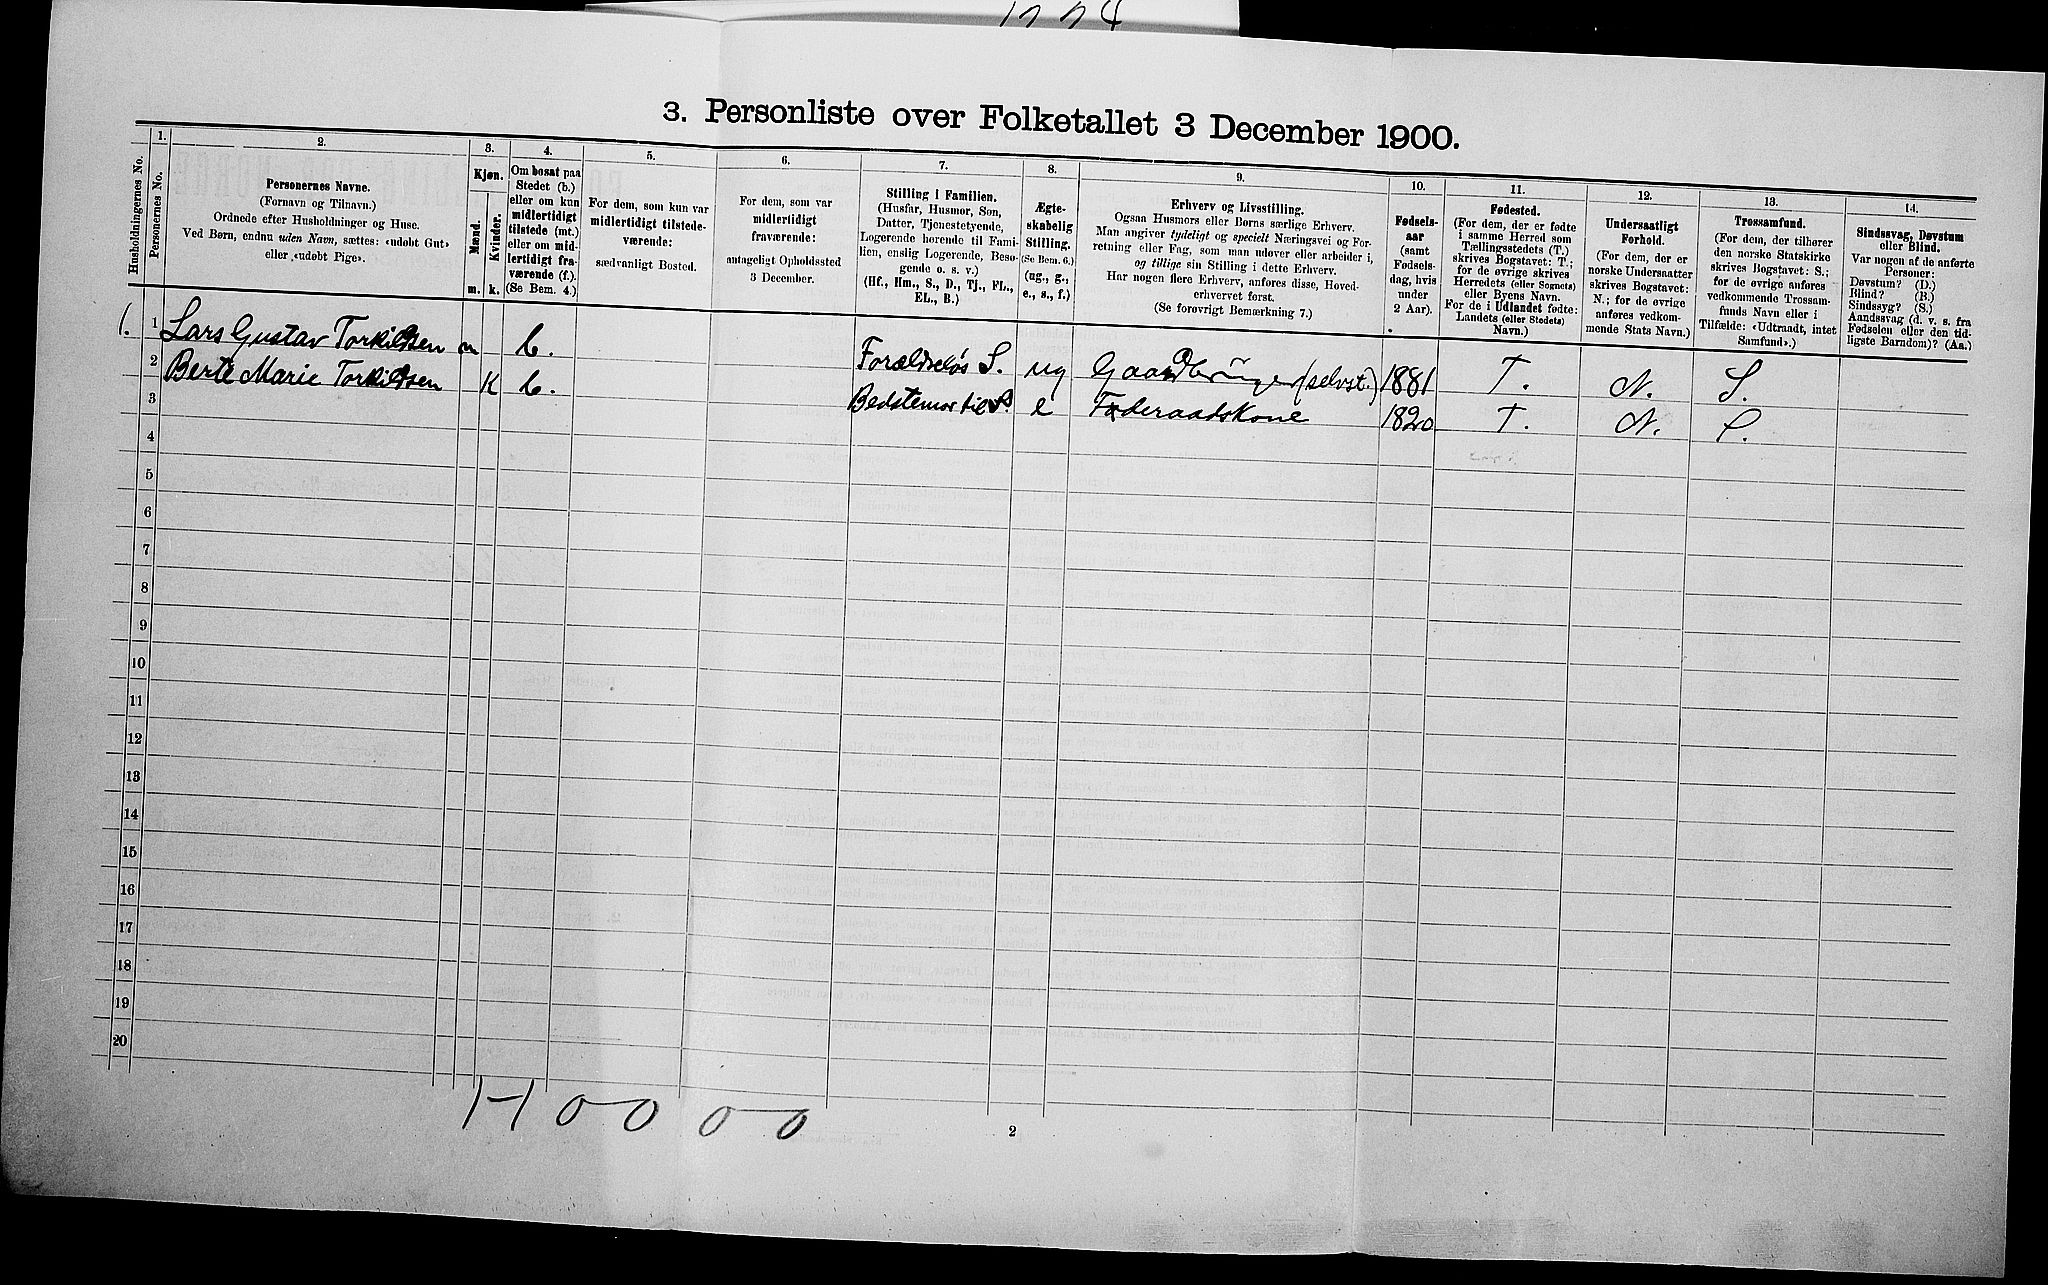 3. Personliste over Folketallet 3 December 1900.
Husholdningernes No.
1.
Personernes No.
2.
Personernes Navne.
(Fornavn og Tilnavn.)
Ordnede efter Husholdninger og Huse.
Ved Børn, endnu uden Navn, sættes: «udøbt Gut»
eller «udøbt Pige».
3.
Kjøn.
Mænd.
Kvinder.
m. k.
4.
Om bosat paa
Stedet (b.)
eller om kun
midlertidigt
tilstede (mt.)
eller om mid-
lertidigt fra-
værende (f.).
(Se Bem. 4.)
5.
For dem, som kun var
midlertidigt tilstede-
værende:
sædvanligt Bosted.
6.
For dem, som var
midlertidigt
fraværende:
antageligt Opholdssted
3 December.
7.
Stilling i Familien.
(Husfar, Husmor, Søn,
Datter, Tjenestetyende,
Logerende hørende til Fami-
lien, enslig Logerende, Besø-
gende o. s. v.)
(Hf., Hm., S., D., Tj., FL.,
EL., B.)
8.
Ægte-
skabelig
Stilling.
(Se Bem. 6.)
(ug., g.,
e., s., f.)
9.
Erhverv og Livsstilling.
Ogsaa Husmors eller Børns særlige Erhverv.
Man angiver tydeligt og specielt Næringsvei og For-
retning eller Fag, som man udøver eller arbeider i,
og tillige sin Stilling i dette Erhverv.
Har nogen flere Erhverv, anføres disse, Hoved-
erhvervet først.
(Se forøvrigt Bemærkning 7.)
10.
Fødsels-
aar
(samt
Fødsels-
dag, hvis
under
2 Aar).
11.
Fødested.
(For dem, der er fødte
i samme Herred som
Tællingsstedets (T.)
skrives Bogstavet: T.;
for de øvrige skrives
Herredets (eller Sognets)
eller Byens Navn.
For de i Udlandet fødte:
Landets (eller Stedets)
Navn.)
12.
Undersaatligt
Forhold.
(For dem, der er
norske Undersaatter
skrives Bogstavet:
N.; for de øvrige
anføres vedkom-
mende Stats Navn.)
13.
Trossamfund.
(For dem, der tilhører
den norske Statskirke
skrives Bogstavet: S.;
for de øvrige anføres
vedkommende Trossam-
funds Navn eller i
Tilfælde: «Udtraadt, intet
Samfund».)
14.
Sindssvag, Døvstum
eller Blind.
Var nogen af de anførte
Personer:
Døvstum? (D.)
Blind? (B.)
Sindssyg? (S.)
Aandssvag (d. v. s. fra
Fødselen eller den tid-
ligste Barndom)? (Aa.)
1. 1 Lars Gustav Torkildsen m b. Forældreløs S. ug Gaardbruger (selvst.) 1881 T. N. S.
2 Berte Marie Torkildsen K b. Bedstemor til e Føderaadskone 1820 T. N. S.
3
4
5
6
7
8
9
10
11
12
13
14
15
16
17
18
19
20
2